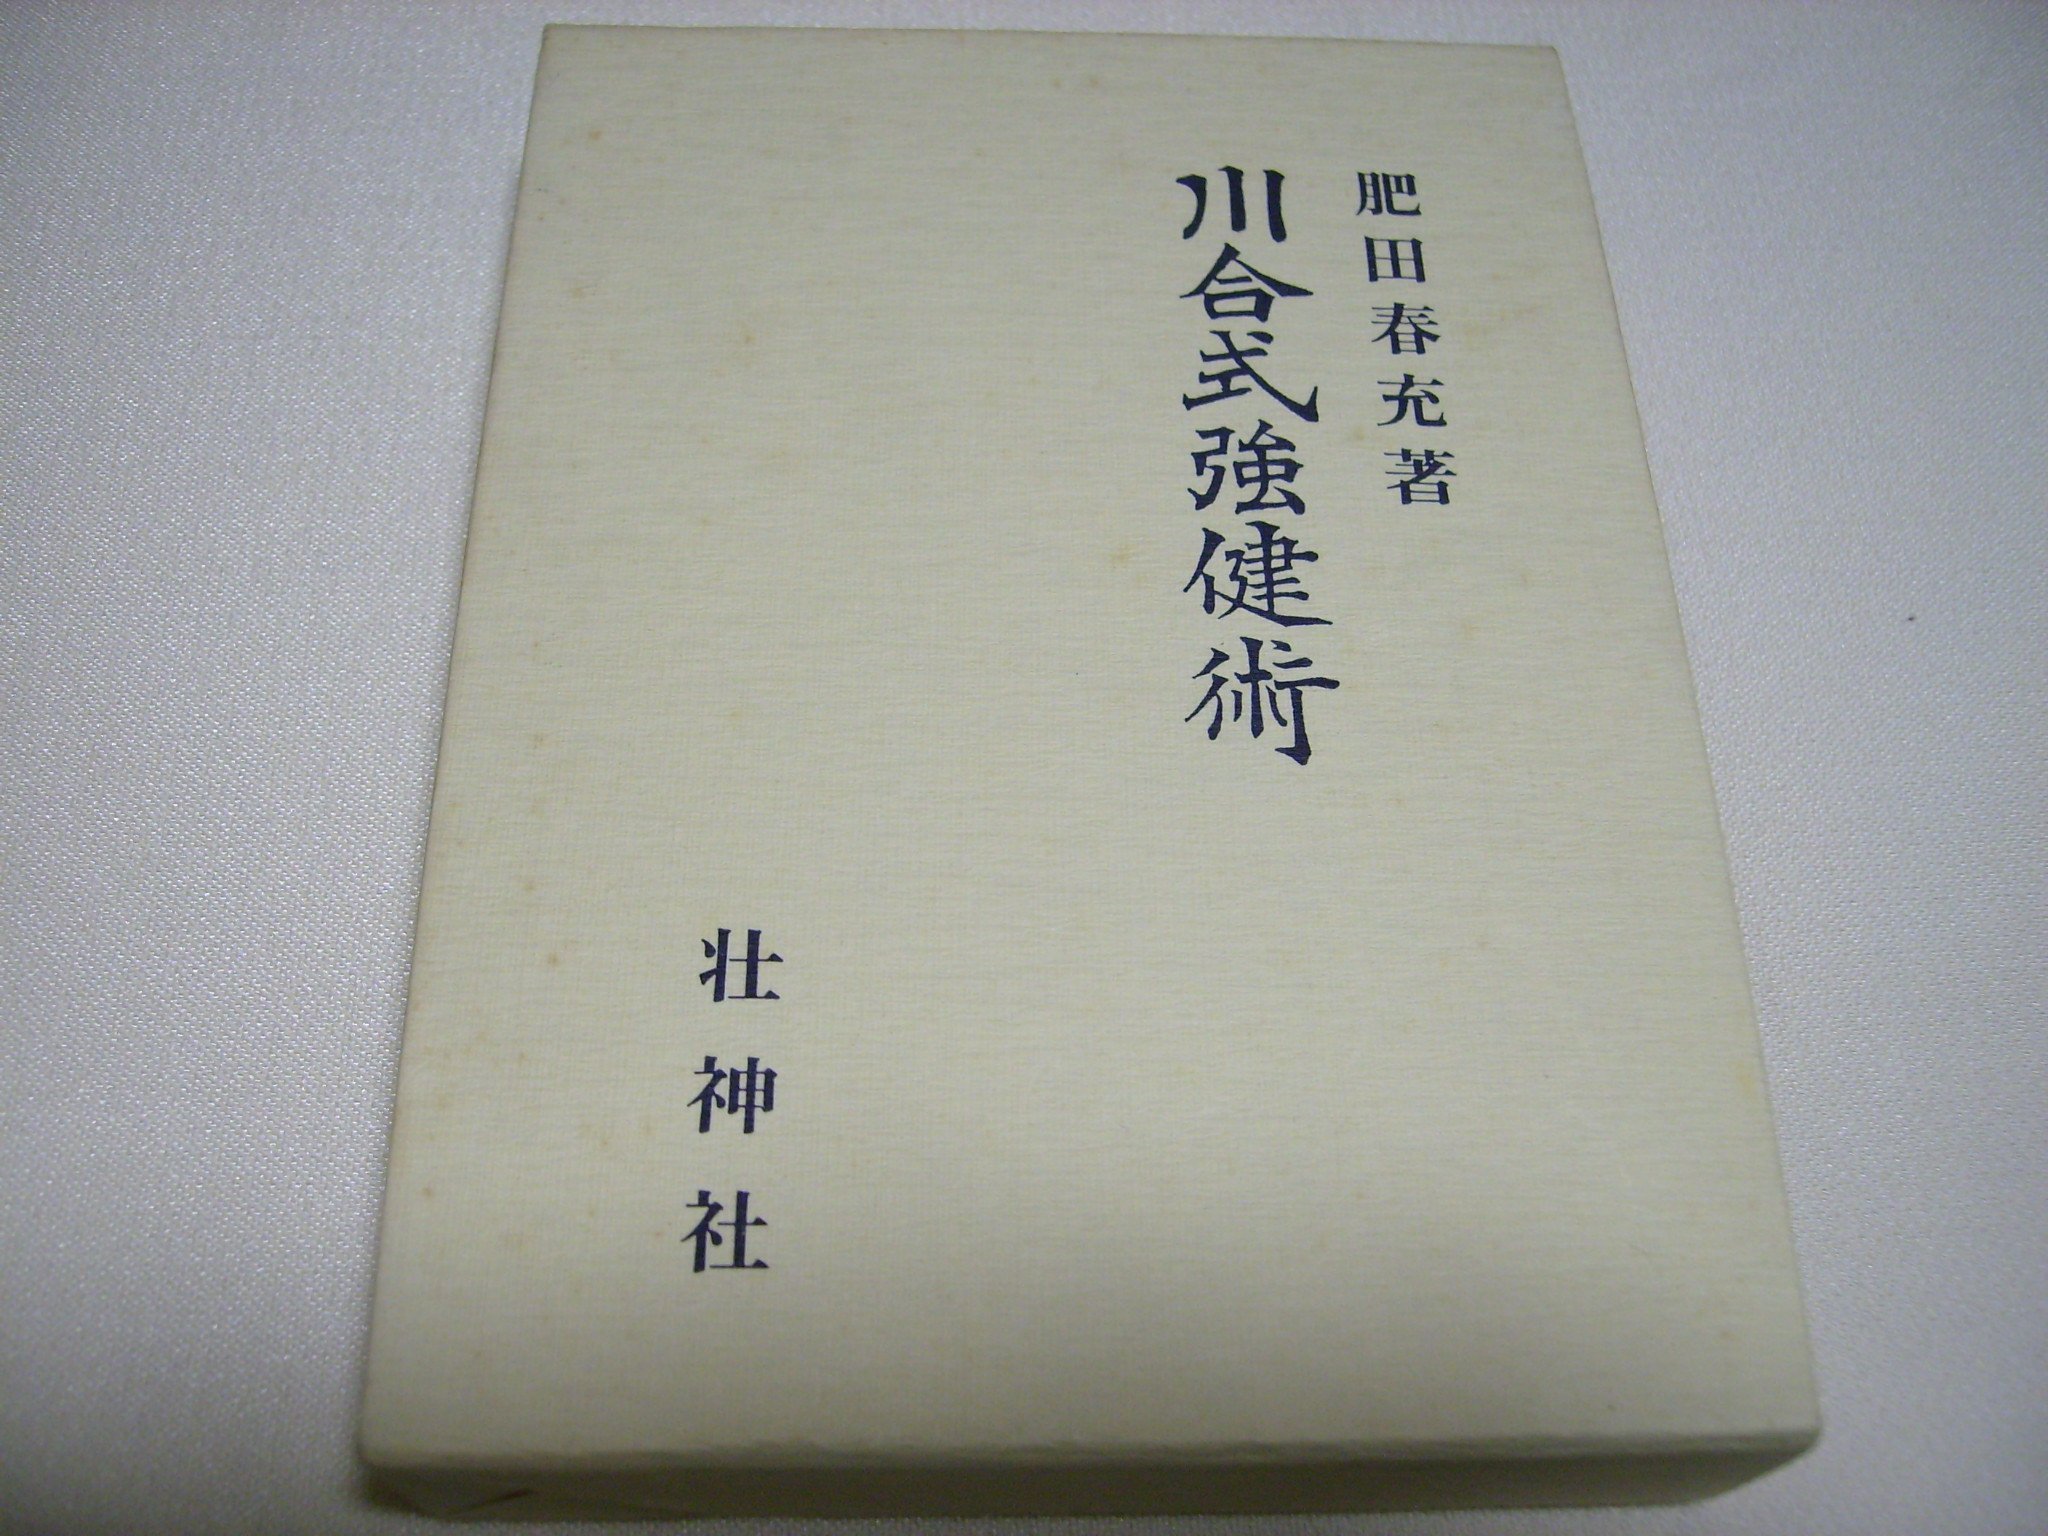 肥田春充著
川合式強健術
壮神社